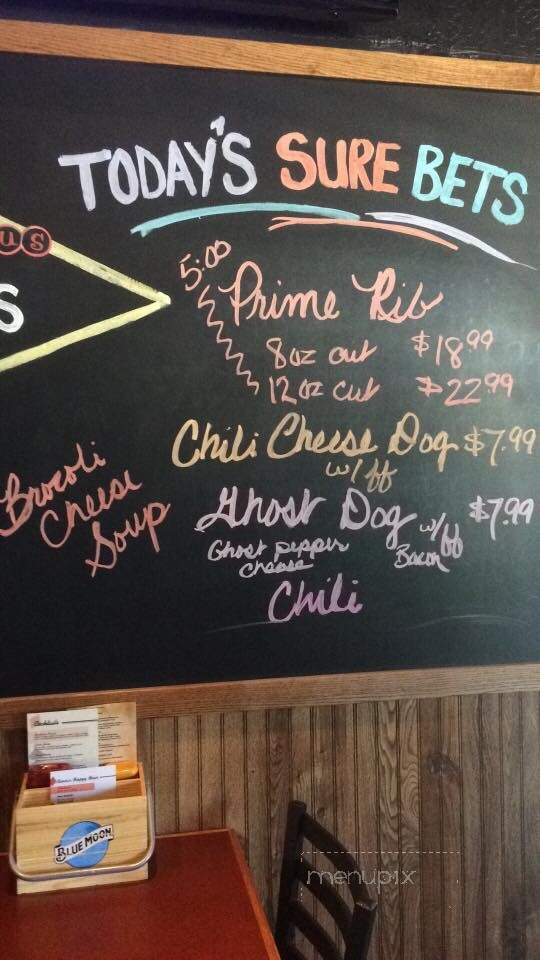 TODAY'S SURE BETS
us
S
5:00
Prime Rib
8oz cut $18.99
12oz cut $22.99
Chili Cheese Dog $7.99
w/ff
Brocoli
Cheese
Soup
Ghost Dog w/ff $7.99
Ghost pepper
Cheese
Bacon
Chili
BLUE MOON
menupix